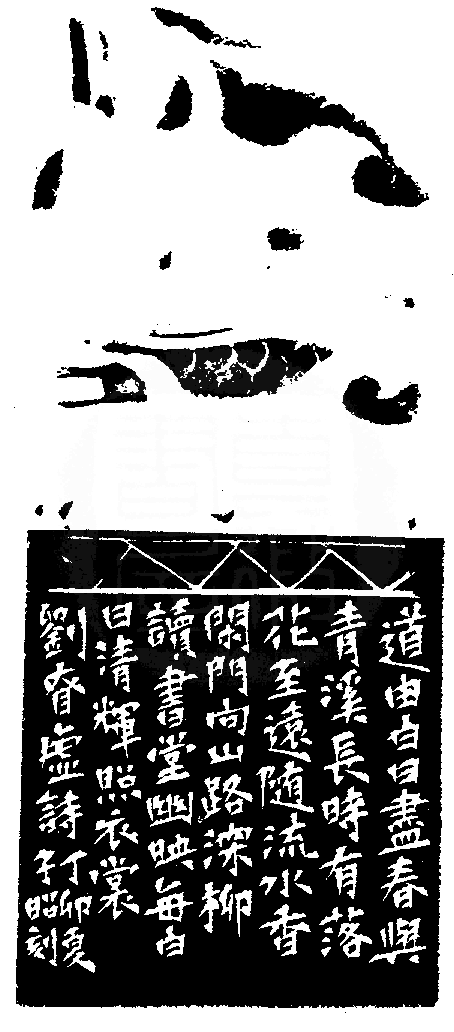 道由白日盡春與
青溪長時有落
花至遠隨流水香
閑門向山路深柳
讀書堂幽映每白
日清輝照衣裳
劉眘虛詩于丁卯夏
昭刻